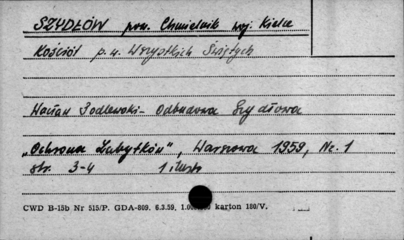 SZYDŁÓW pow. Chmielnik woj. Kielce
Kościół p.w. Wszystkich Świętych
Wacław Podlewski - Odbudowa Szydłowa
„Ochrona Zabytków", Warszawa 1959, Nr. 1
str. 3-4 1 ilustr.
CWD B-15b Nr 515/P. GDA-809. 6.3.59. karton 180/V.